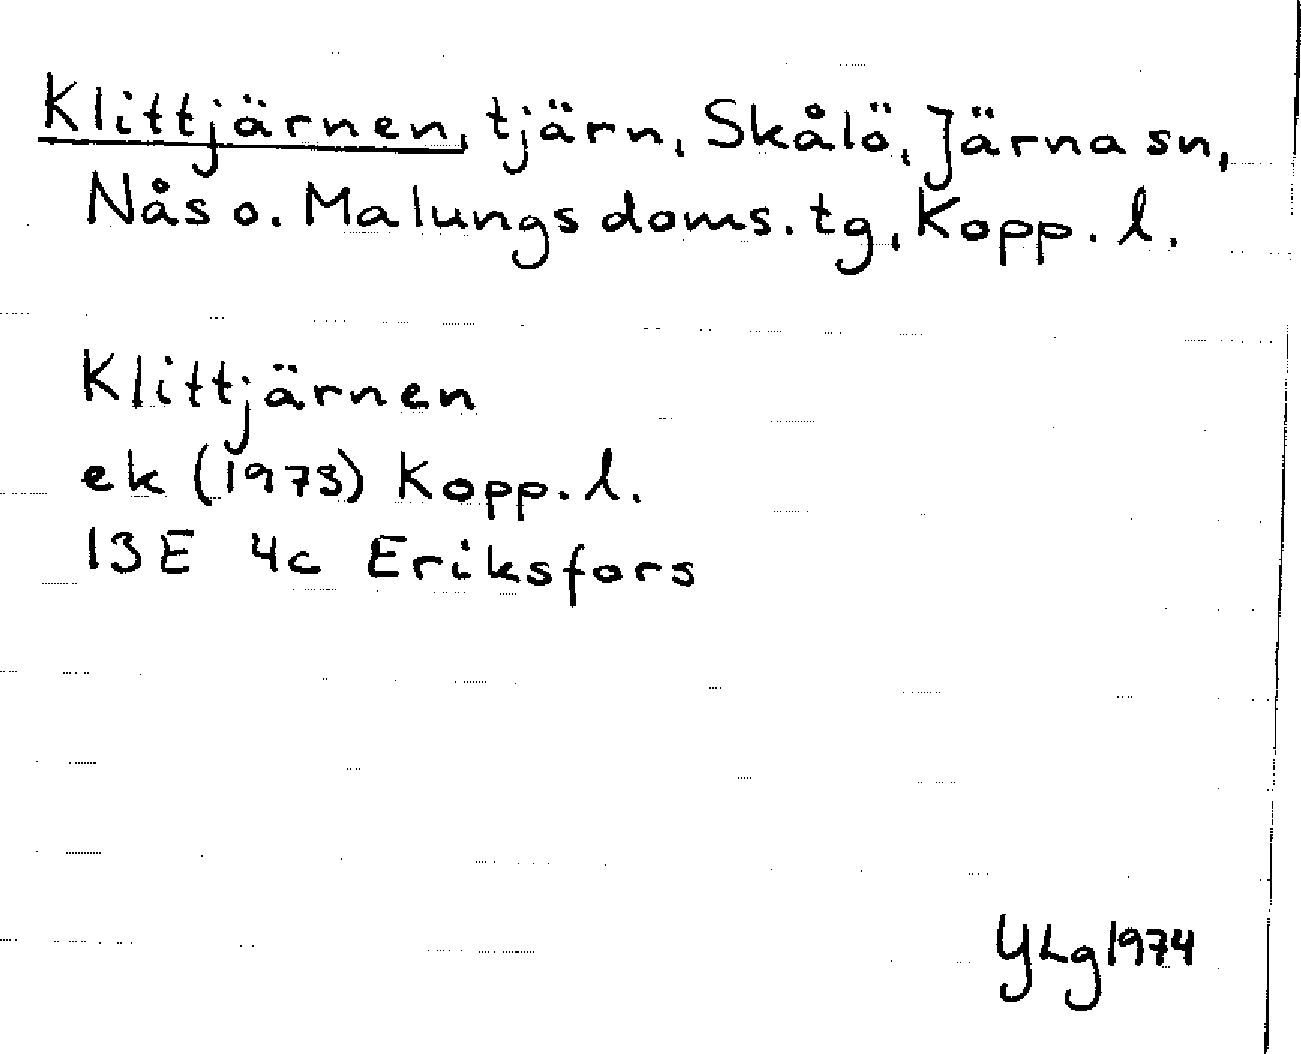 Klittjärnen, tjärn, Skålö, Järna sn,
Nås o. Malungs doms. tg, Kopp. l.
Klittjärnen
ek (1973) Kopp. l.
13E 4c Eriksfors
YLg 1974